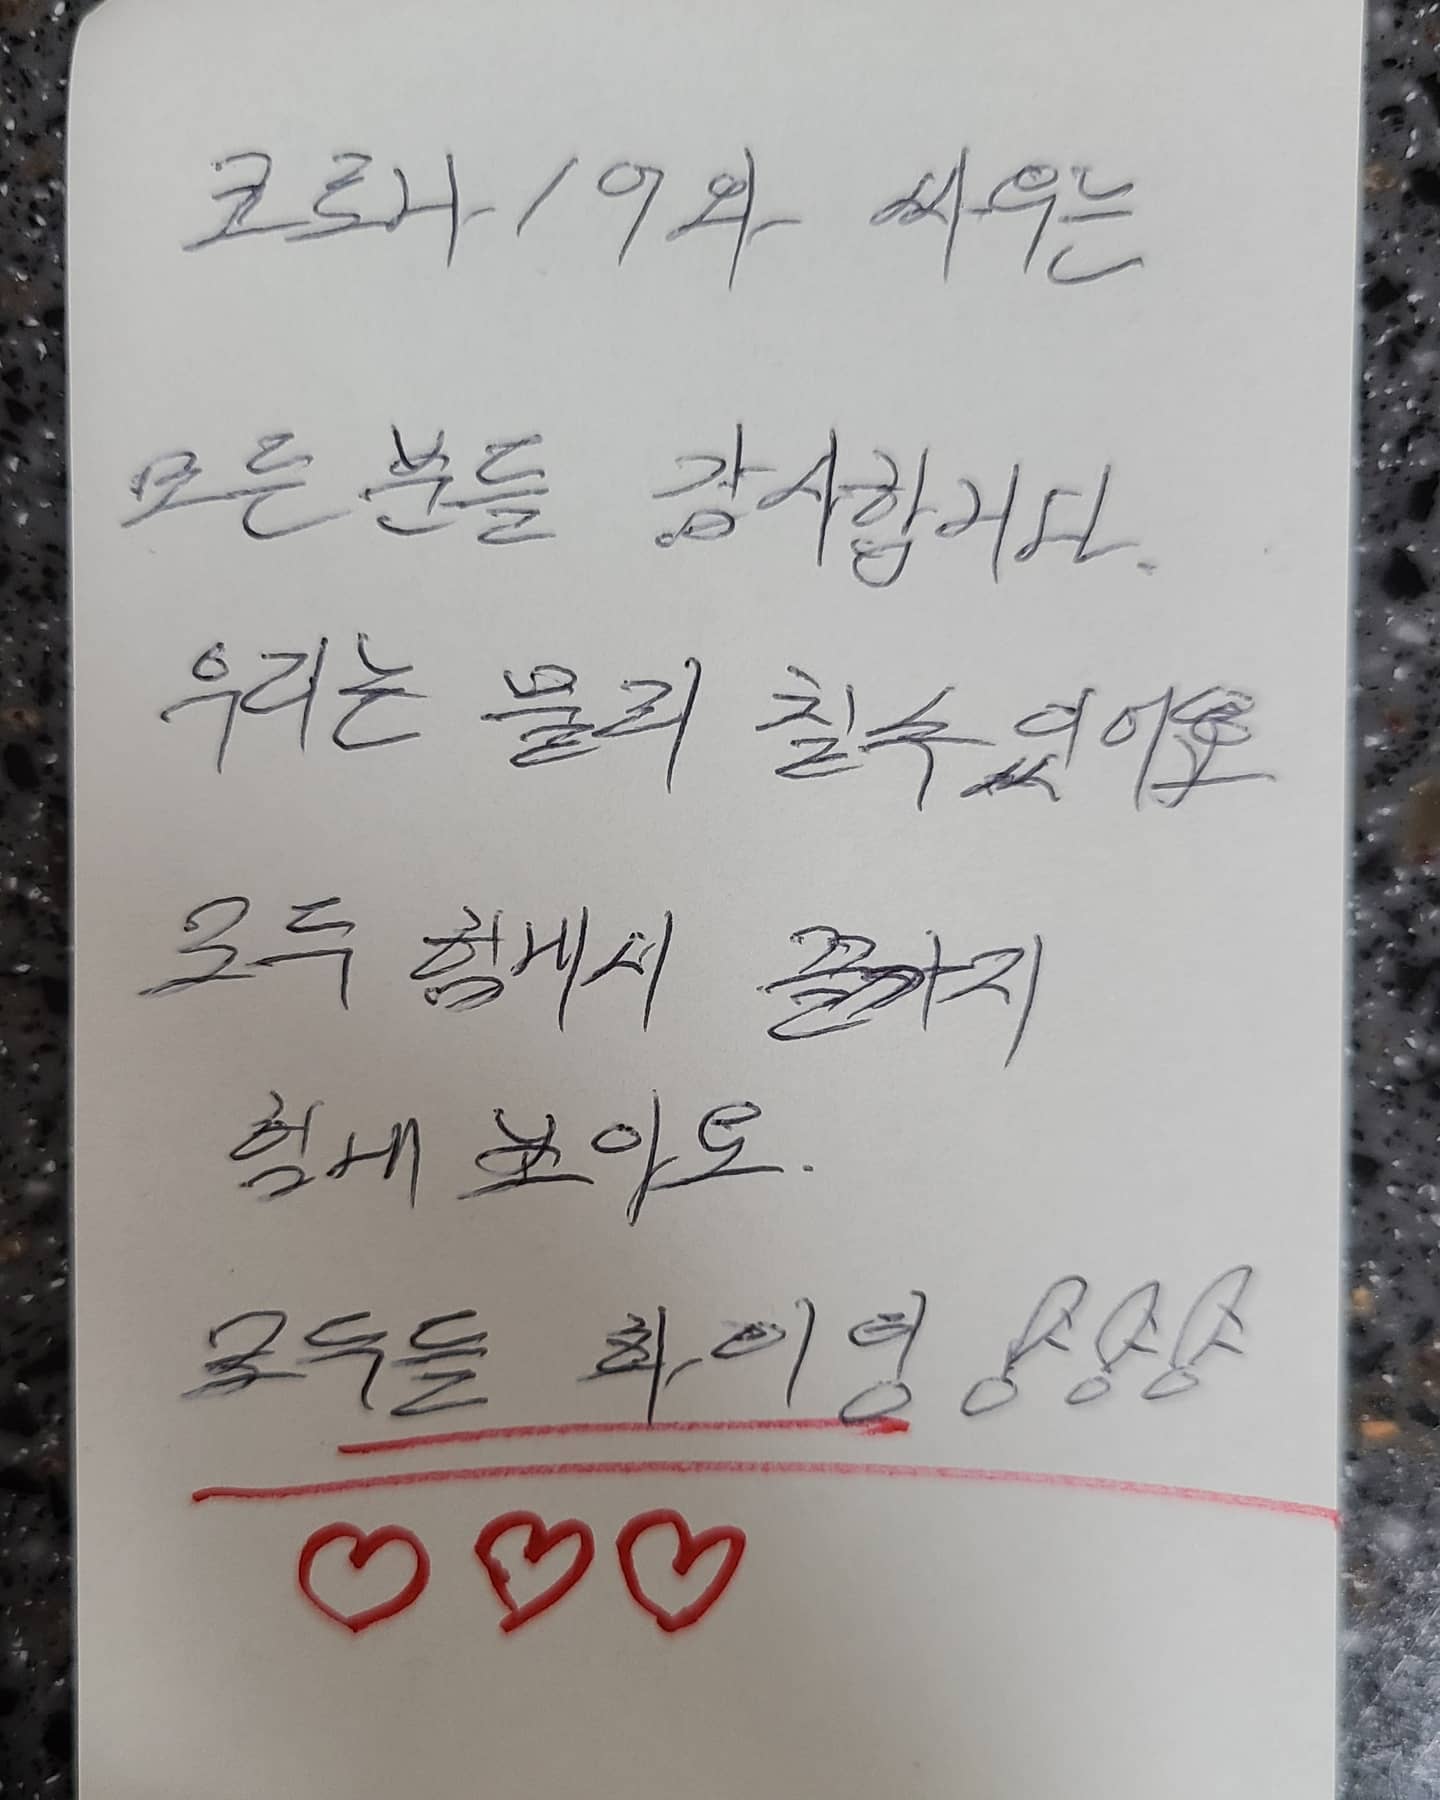 코로나19와 싸우는
모든분들 감사합니다.
우리는 물리 칠수있어요
모두 힘내서 끝까지
힘내 보아요.
모두들 화이팅!!!
♡♡♡